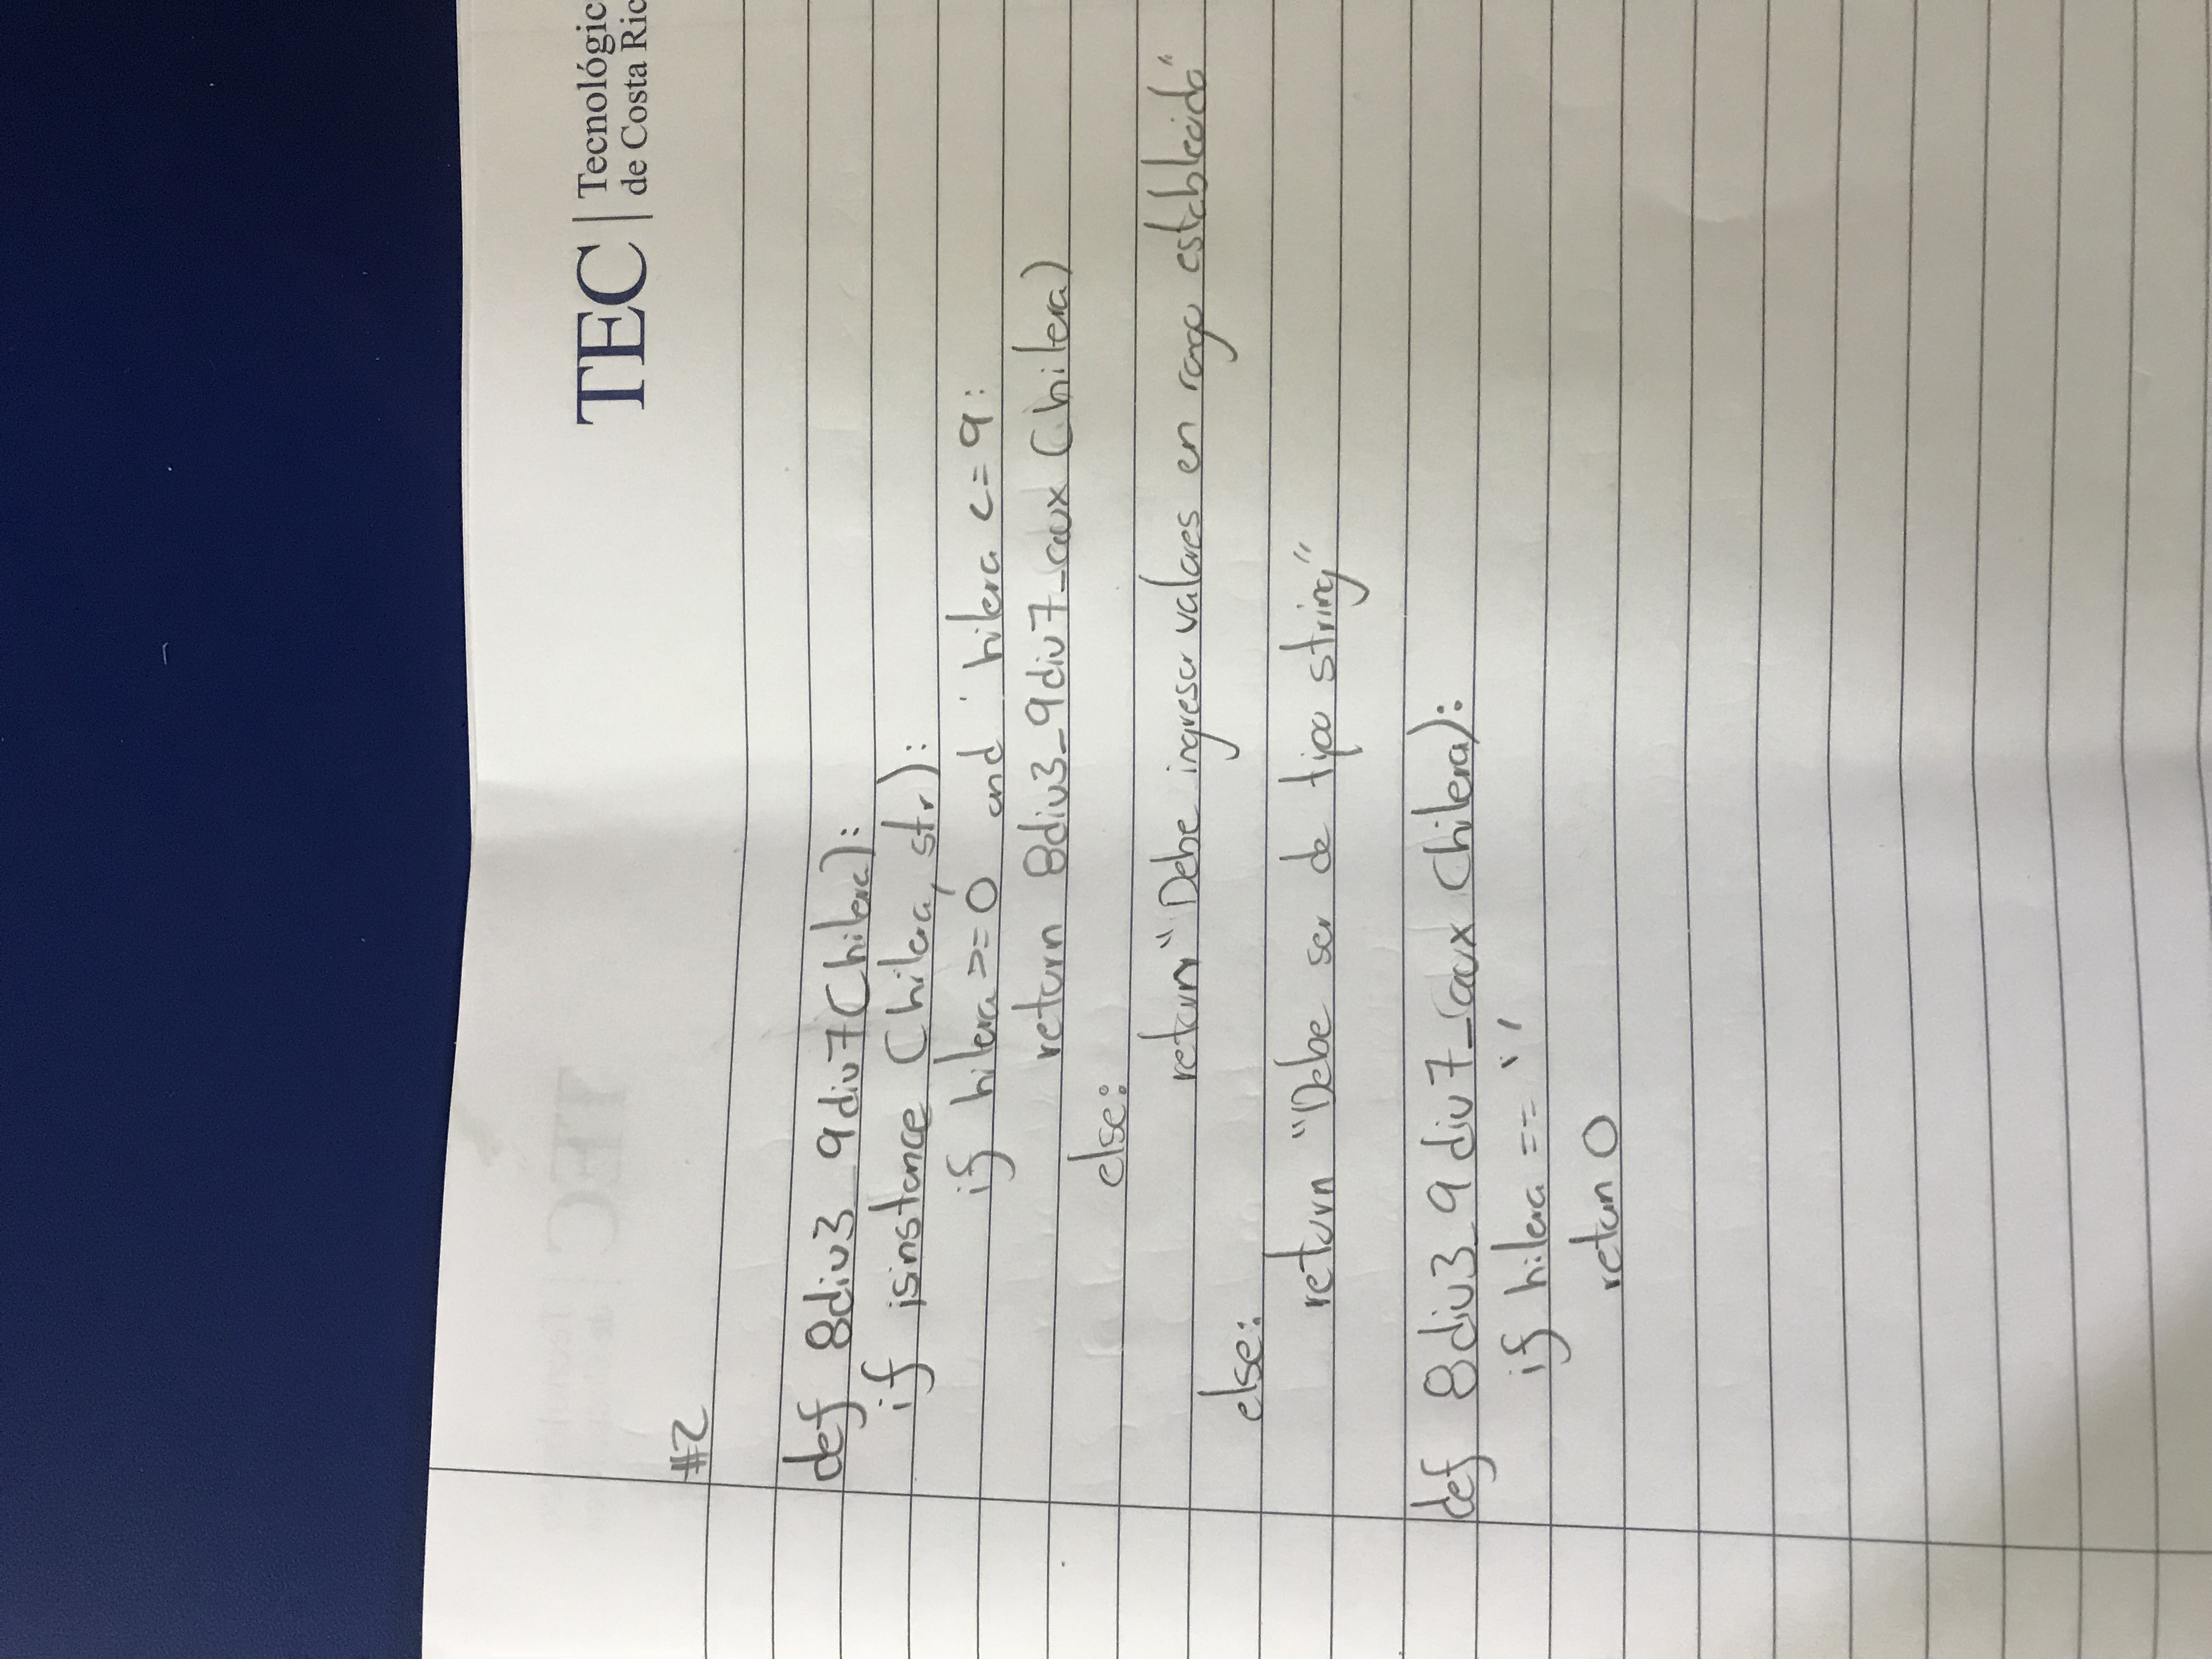 TEC | Tecnológic
de Costa Ric
#2
def 8div3_9div7(hilera):
if isinstance (hilera, str):
if hilera >= 0 and hilera <= 9:
return 8div3_9div7_aux (hilera)
else:
return "Debe ingresar valores en rago establecido"
else:
return "Debe ser de tipo string"
def 8div3_9div7_aux (hilera):
if hilera == ''
retun 0